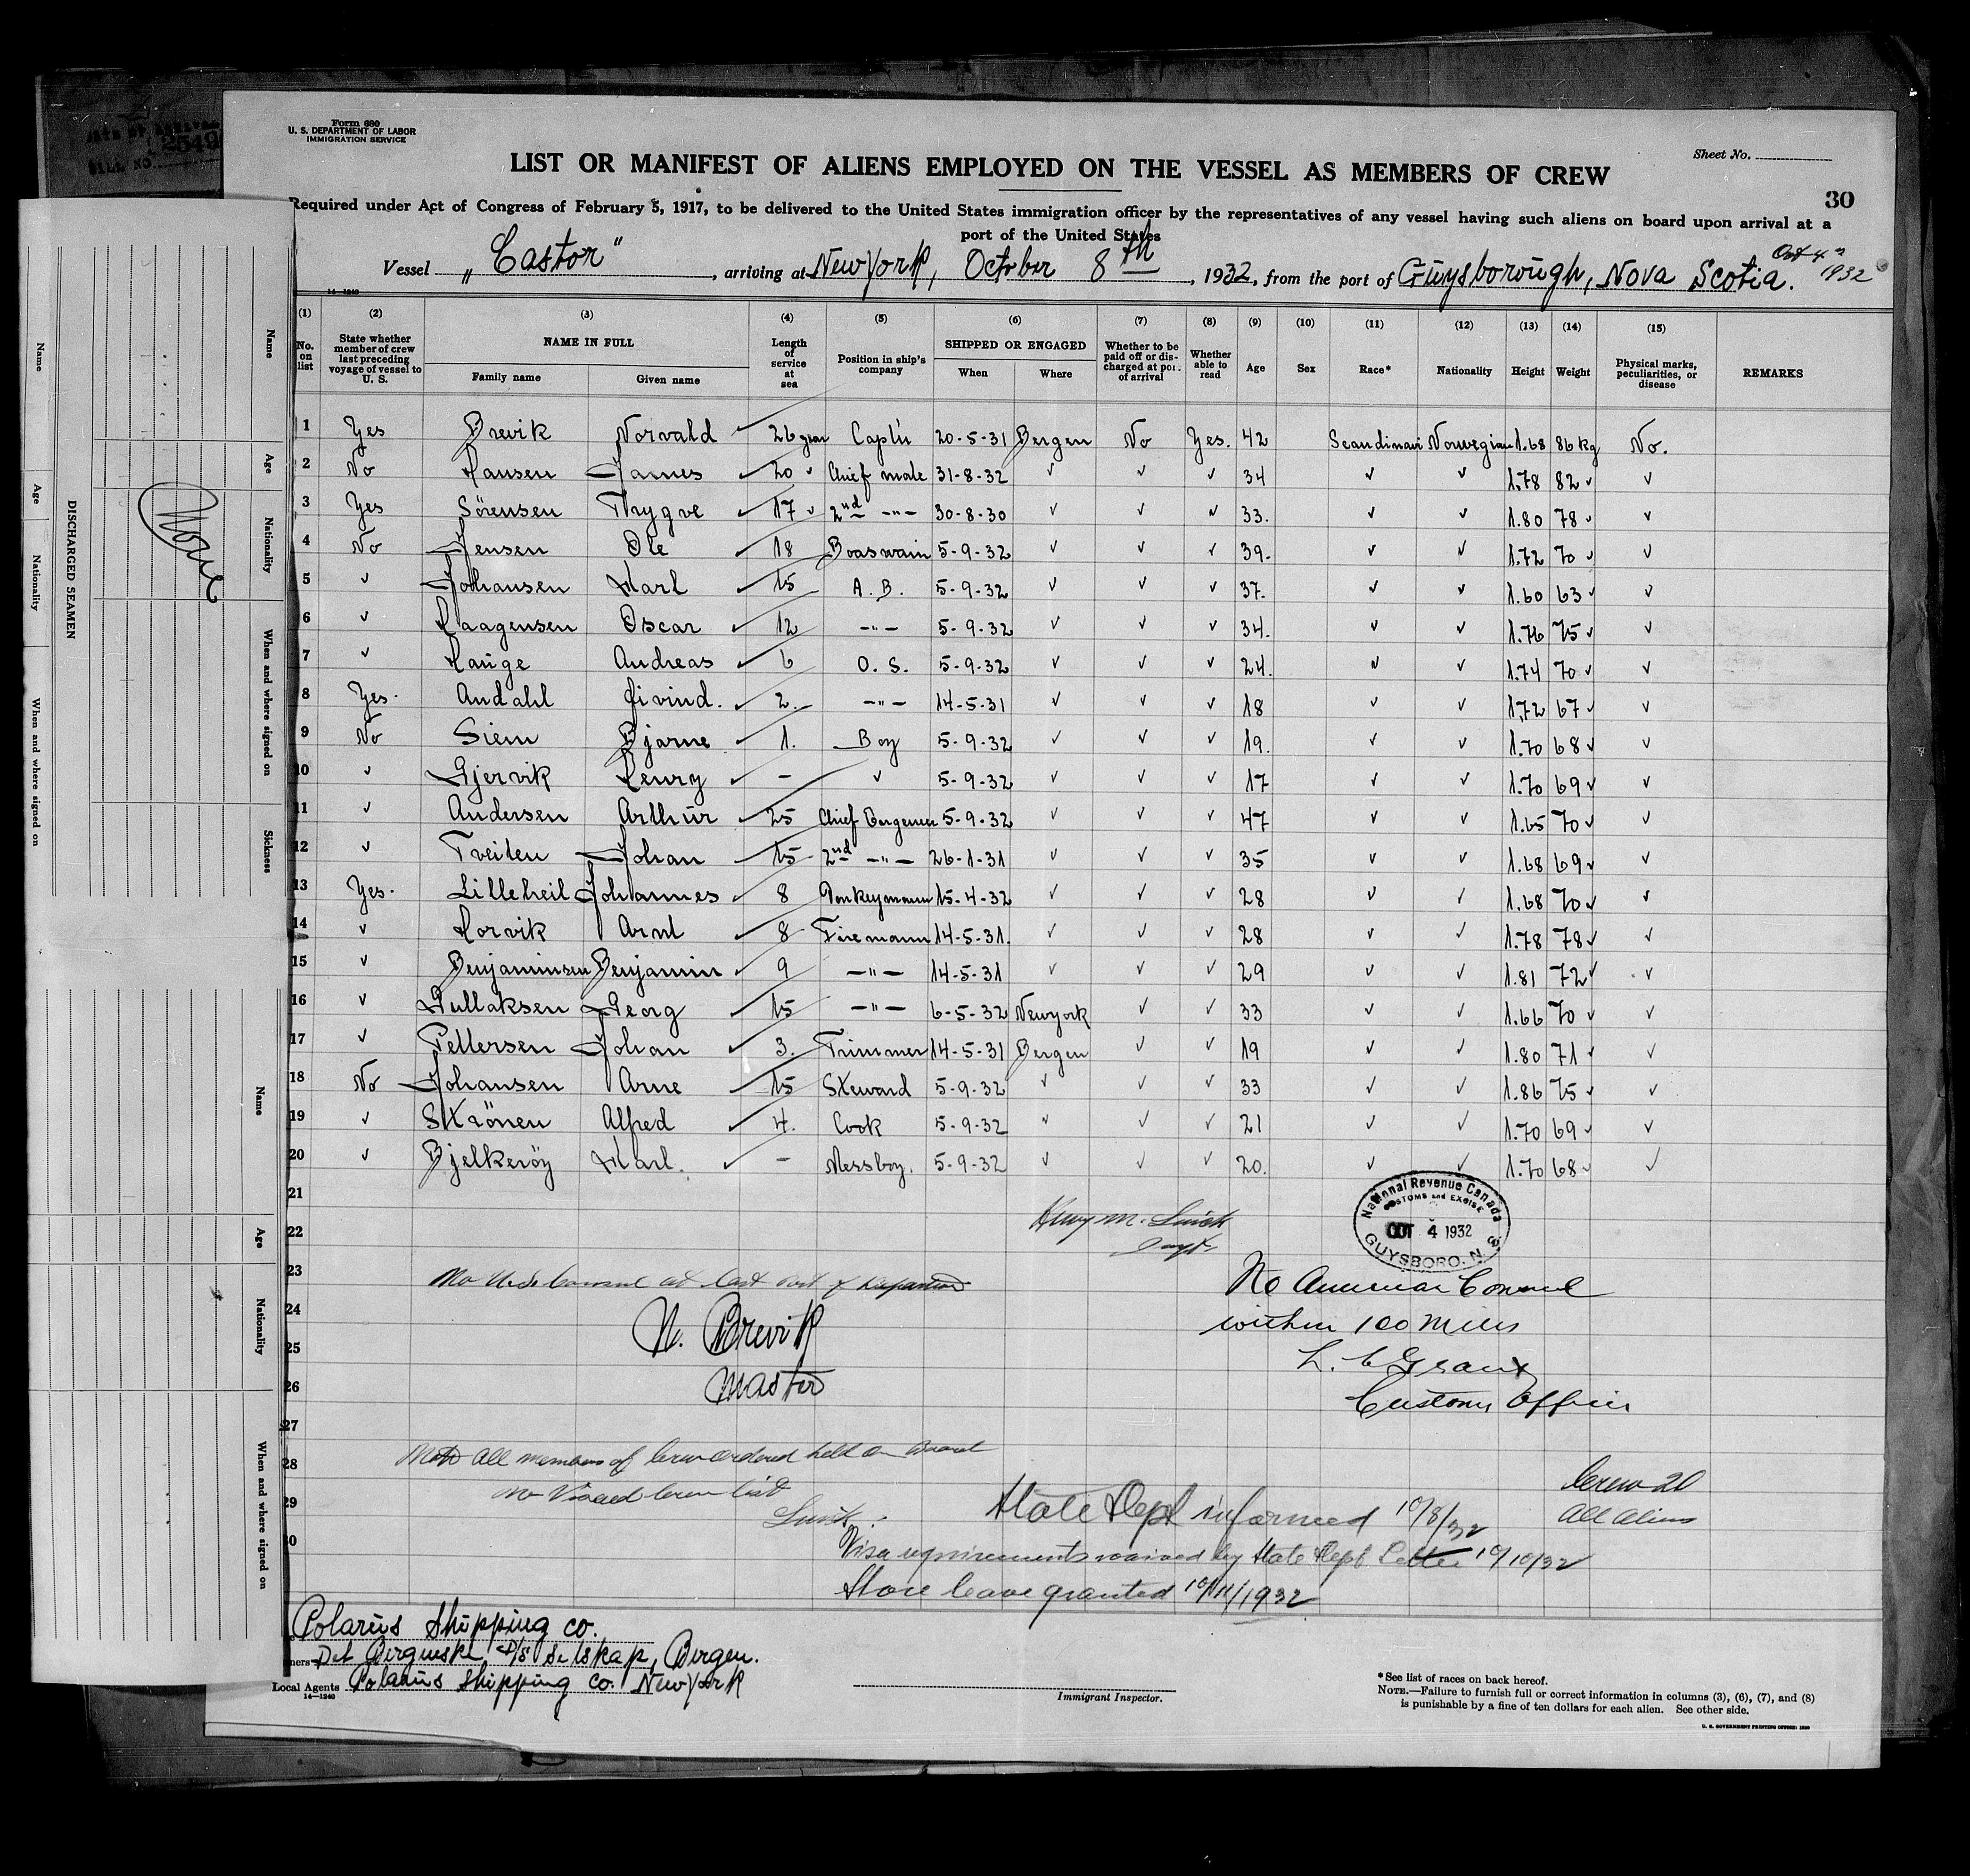 2549
BILL NO.
Form 680
U. S. DEPARTMENT OF LABOR
IMMIGRATION SERVICE
Sheet No.
LIST OR MANIFEST OF ALIENS EMPLOYED ON THE VESSEL AS MEMBERS OF CREW
30
Required under Act of Congress of February 5, 1917, to be delivered to the United States immigration officer by the representatives of any vessel having such aliens on board upon arrival at a
port of the United States
Oct 4th 1932
Vessel „Castor", arriving at New York, Octrber 8th, 1932, from the port of Guysborough, Nova Scotia.
14-1240
(1) (2) (3) (4) (5) (6) (7) (8) (9) (10) (11) (12) (13) (14) (15)
No. on list | State whether member of crew last preceding voyage of vessel to U. S. | NAME IN FULL Family name Given name | Length of service at sea | Position in ship's company | SHIPPED OR ENGAGED When Where | Whether to be paid off or discharged at port of arrival | Whether able to read | Age | Sex | Race* | Nationality | Height | Weight | Physical marks, peculiarities, or disease | REMARKS
1 Yes Brevik Norvald ✓ 26 year Captn 20-5-31 Bergen No Yes. 42 Scandinavi Norwegian 1.68 86 kg No.
2 No Hansen James ✓ 20 ✓ Chief mate 31-8-32 ✓ ✓ ✓ 34 ✓ ✓ 1.78 82 ✓ ✓
3 Yes Sörensen Thrygve ✓ 17 ✓ 2nd -"- 30-8-30 ✓ ✓ ✓ 33. ✓ ✓ 1.80 78 ✓ ✓
4 No Jensen Ole ✓ 18 Boaswain 5-9-32 ✓ ✓ ✓ 39. ✓ ✓ 1.72 70 ✓ ✓
5 ✓ Johansen Karl ✓ 15 A. B. 5-9-32 ✓ ✓ ✓ 37. ✓ ✓ 1.60 63 ✓ ✓
6 ✓ Haagensen Oscar ✓ 12 -"- 5-9-32 ✓ ✓ ✓ 34. ✓ ✓ 1.76 75 ✓ ✓
7 ✓ Hauge Andreas ✓ 6 O. S. 5-9-32 ✓ ✓ ✓ 24. ✓ ✓ 1.74 70 ✓ ✓
8 Yes. Andahl Öivind. ✓ 2. -"- 14-5-31 ✓ ✓ ✓ 18 ✓ ✓ 1.72 67 ✓ ✓
9 No Siem Bjarne ✓ 1. Boy 5-9-32 ✓ ✓ ✓ 19. ✓ ✓ 1.70 68 ✓ ✓
10 ✓ Gjervik Henry ✓ - ✓ 5-9-32 ✓ ✓ ✓ 17 ✓ ✓ 1.70 69 ✓ ✓
11 ✓ Andersen Arthur ✓ 25 Chief Engeneer 5-9-32 ✓ ✓ ✓ 47 ✓ ✓ 1.65 70 ✓ ✓
12 ✓ Tveiten Johan ✓ 15 2nd -"- 26-1-31 ✓ ✓ ✓ 35 ✓ ✓ 1.68 69 ✓ ✓
13 Yes. Lilleheil Johannes ✓ 8 Donkeymann 15-4-32 ✓ ✓ ✓ 28 ✓ ✓ 1.68 70 ✓ ✓
14 ✓ Horvik Arnt ✓ 8 Firemann 14-5-31. ✓ ✓ ✓ 28 ✓ ✓ 1.78 78 ✓ ✓
15 ✓ Benjaminsen Benjamin ✓ 9 -"- 14-5-31 ✓ ✓ ✓ 29 ✓ ✓ 1.81 72 ✓ ✓
16 ✓ Gullaksen Georg ✓ 15 -"- 6-5-32 Newyork ✓ ✓ 33 ✓ ✓ 1.66 70 ✓ ✓
17 ✓ Pettersen Johan ✓ 3. Trimmer 14-5-31 Bergen ✓ ✓ 19 ✓ ✓ 1.80 71 ✓ ✓
18 No Johansen Arne ✓ 15 Steward 5-9-32 ✓ ✓ ✓ 33 ✓ ✓ 1.86 75 ✓ ✓
19 ✓ Skrönen Alfred ✓ 4. Cook 5-9-32 ✓ ✓ ✓ 21 ✓ ✓ 1.70 69 ✓ ✓
20 ✓ Bjelkeröy Karl. ✓ - Messboy. 5-9-32 ✓ ✓ ✓ 20. ✓ ✓ 1.70 68 ✓ ✓
21
22
23
24
25
26
27
28
29
30
National Revenue Canada
CUSTOMS and EXCISE
OCT 4 1932
GUYSBORO, N. S.
No U.S. Consul at last port of departure
N. Brevik
Master
No American Consul
within 100 Miles
L. C. Grant
Customs Officer
Note All members of Crew ordered held on Board
No Visaed Crew list
State Dept informed 10/8/32
Crew 20
All Aliens
Visa requirements waived by State Dept Letter 10/10/32
Shore leave granted 10/11/1932
Polarius Shipping co.
Owners Det Bergenske D/S Selskap, Bergen.
Local Agents Polarius Shipping Co. New York
14-1240
Immigrant Inspector.
*See list of races on back hereof.
NOTE.—Failure to furnish full or correct information in columns (3), (6), (7), and (8)
is punishable by a fine of ten dollars for each alien. See other side.
U. S. GOVERNMENT PRINTING OFFICE: 1930
DISCHARGED SEAMEN
Name
Age
Nationality
When and where signed on
Sickness
None
Name
Age
Nationality
When and where signed on
Name
Age
Nationality
When and where signed on